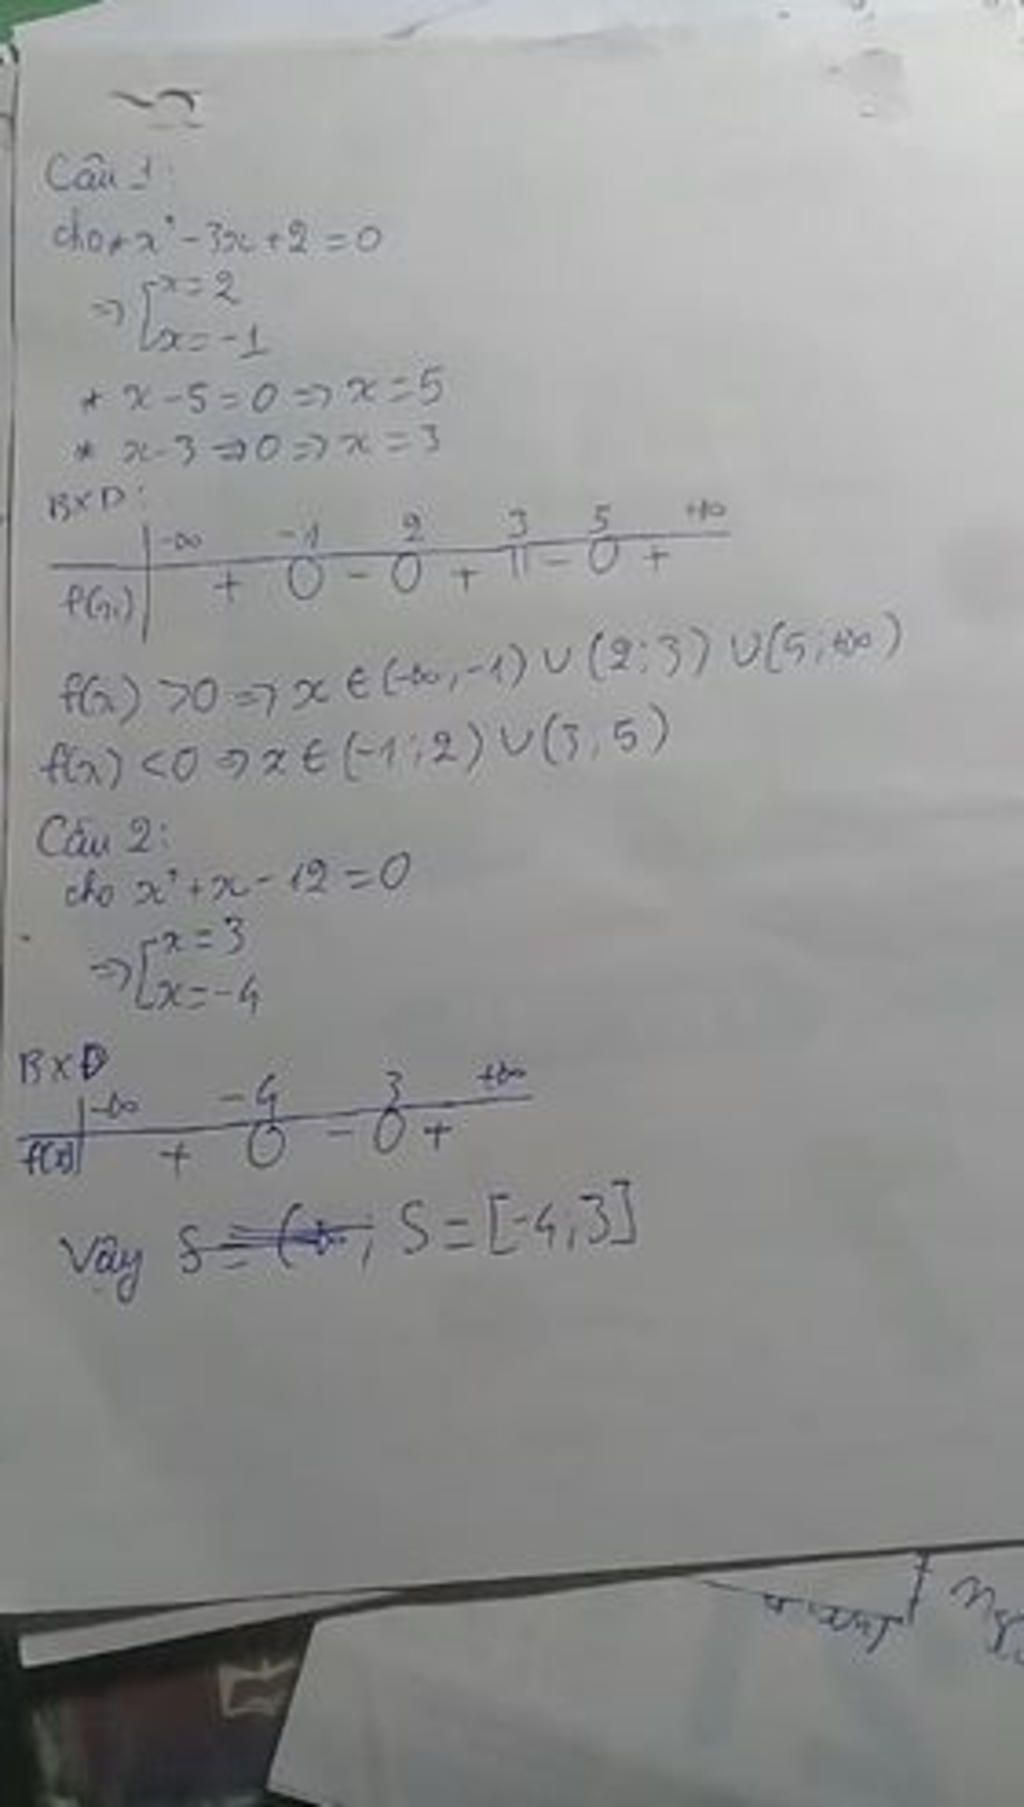 Câu 1:
cho * x² - 3x + 2 = 0
=> [x = 2
x = -1
* x - 5 = 0 => x = 5
* x - 3 => 0 => x = 3
BXD:
-∞ -1 2 3 5 +∞
f(x) + 0 - 0 + || - 0 +
f(x) > 0 => x ∈ (-∞, -1) ∪ (2; 3) ∪ (5; +∞)
f(x) < 0 => x ∈ (-1; 2) ∪ (3; 5)
Câu 2:
cho x² + x - 12 = 0
=> [x = 3
x = -4
BXD
-∞ -4 3 +∞
f(x) + 0 - 0 +
Vậy S = [-4; 3]